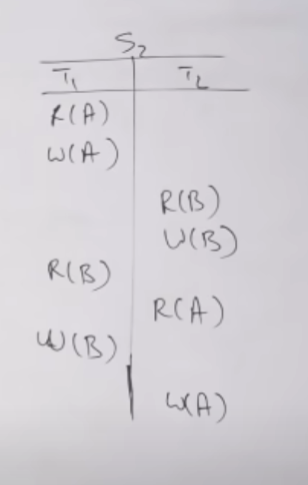 S2
T1 T2
R(A)
W(A)
R(B)
W(B)
R(B)
R(A)
W(B)
W(A)